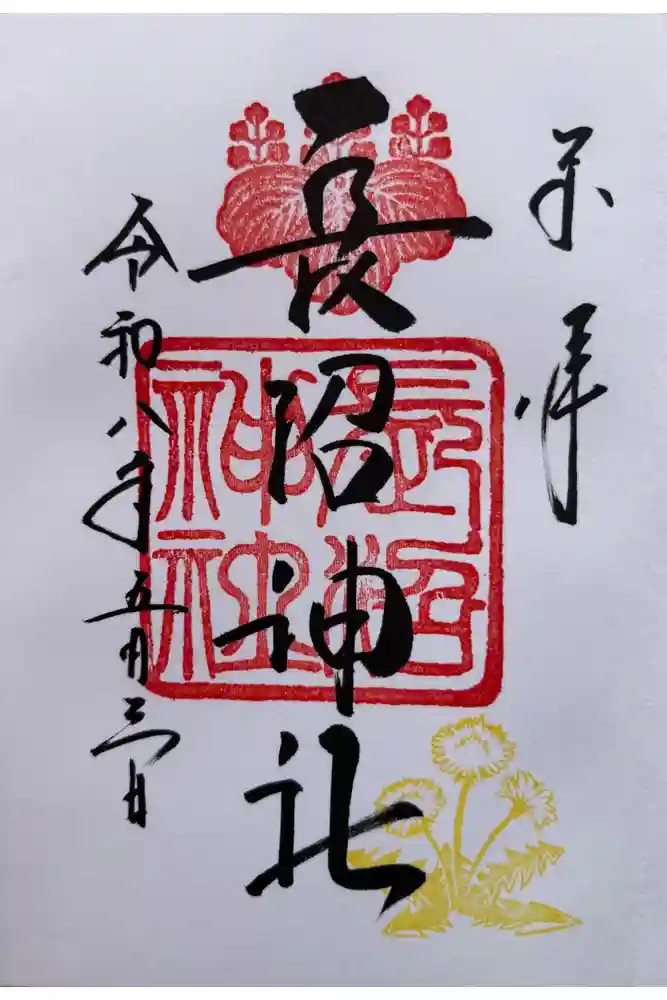 奉拝
長沼神社
長沼神社
令和八年五月三日